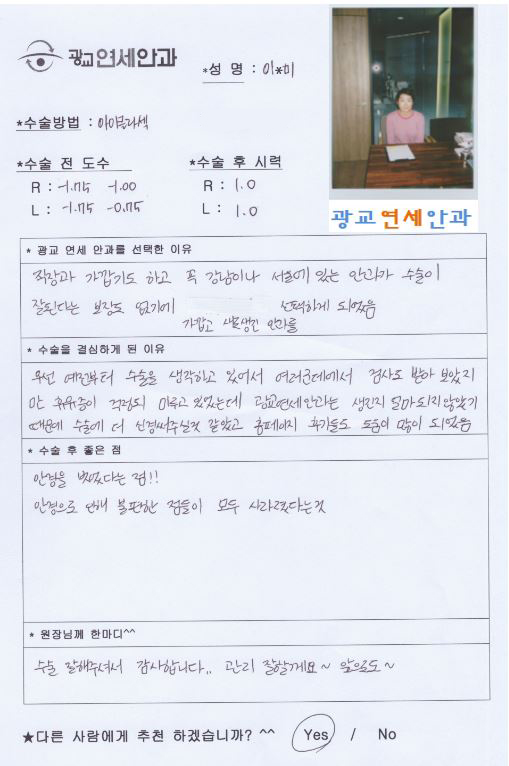 광교연세안과
*성 명 : 이*미
*수술방법 : 아이블라섹
*수술 전 도수
*수술 후 시력
R : -1.75 -1.00
R : 1.0
L : -1.75 -0.75
L : 1.0
광교연세안과
* 광교 연세 안과를 선택한 이유
직장과 가깝기도 하고 꼭 강남이나 서울에 있는 안과가 수술이
잘된다는 보장도 없기에 선택하게 되었음
가깝고 새로생긴 안과를
* 수술을 결심하게 된 이유
우선 예전부터 수술을 생각하고 있어서 여러군데에서 검사도 받아 보았지
만 후유증이 걱정되 미루고 있었는데 광교연세안과는 생긴지 얼마되지않았기
때문에 수술에 더 신경써주실것 같았고 홈페이지 후기들도 도움이 많이 되었음
* 수술 후 좋은 점
안경을 벗었다는 점!!
안경으로 인해 불편한 점들이 모두 사라졌다는것
* 원장님께 한마디^^
수술 잘해주셔서 감사합니다.. 관리 잘할게요~ 앞으로도~
★다른 사람에게 추천 하겠습니까? ^^ Yes / No